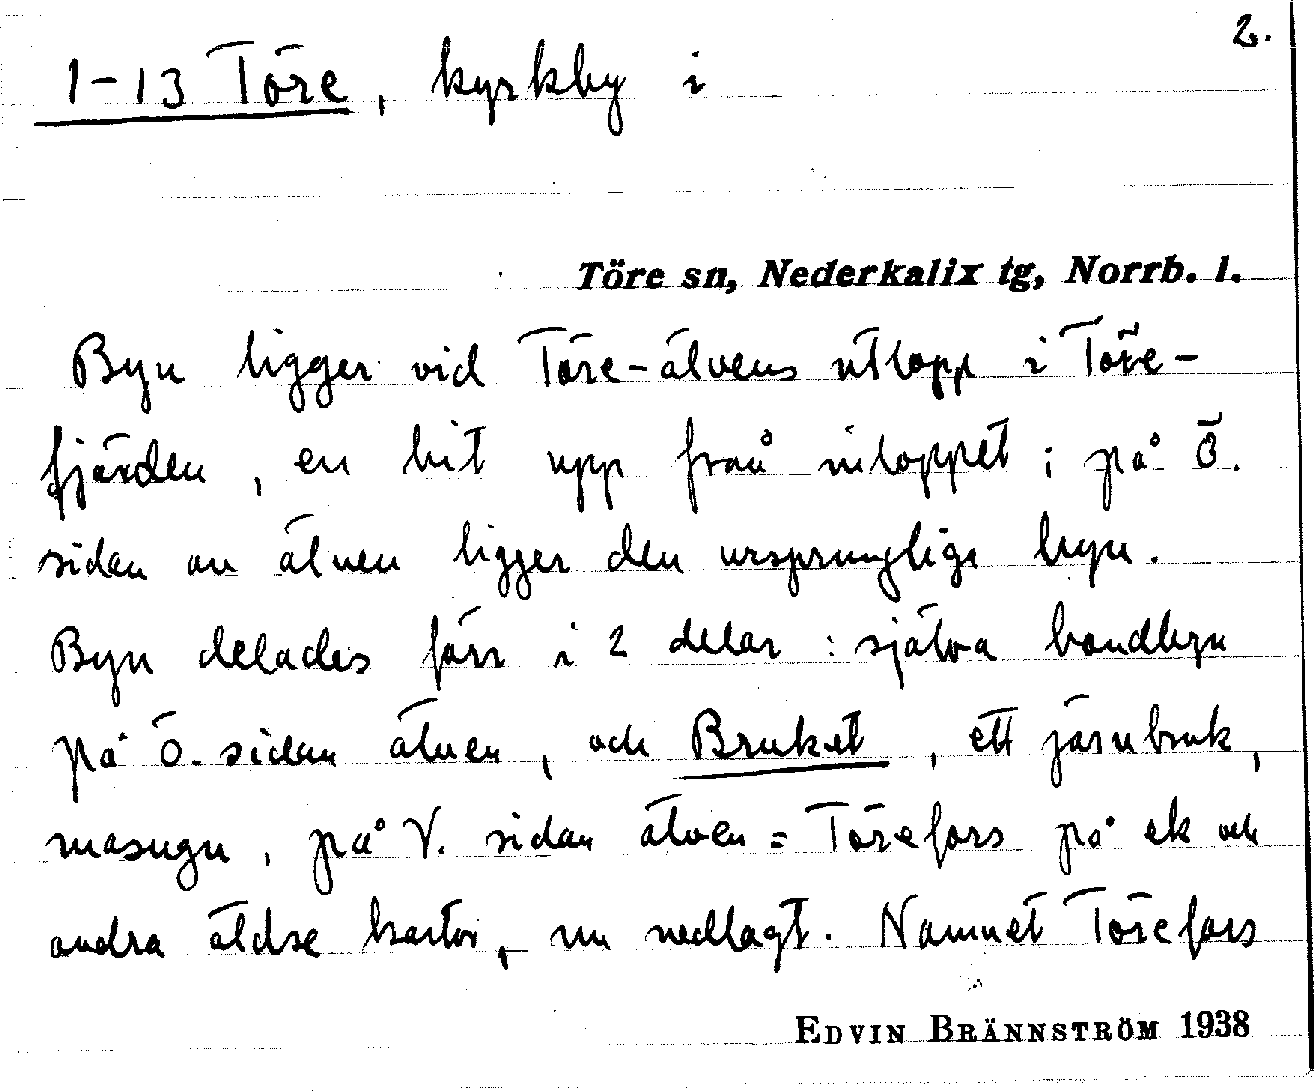 2.
1-13 Töre, kyrkby i
Töre sn, Nederkalix tg, Norrb. l.
Byn ligger vid Töre-älvens utlopp i Töre-
fjärden, en bit upp från inloppet; på Ö.
sidan av älven ligger den ursprungliga byn.
Byn delades förr i 2 delar: själva bondbyn
på Ö. sidan älven, och Bruket, ett järnbruk,
masugn, på V. sidan älven = Törefors på ek och
andra äldre kartor, nu nedlagt. Namnet Törefors
EDVIN BRÄNNSTRÖM 1938